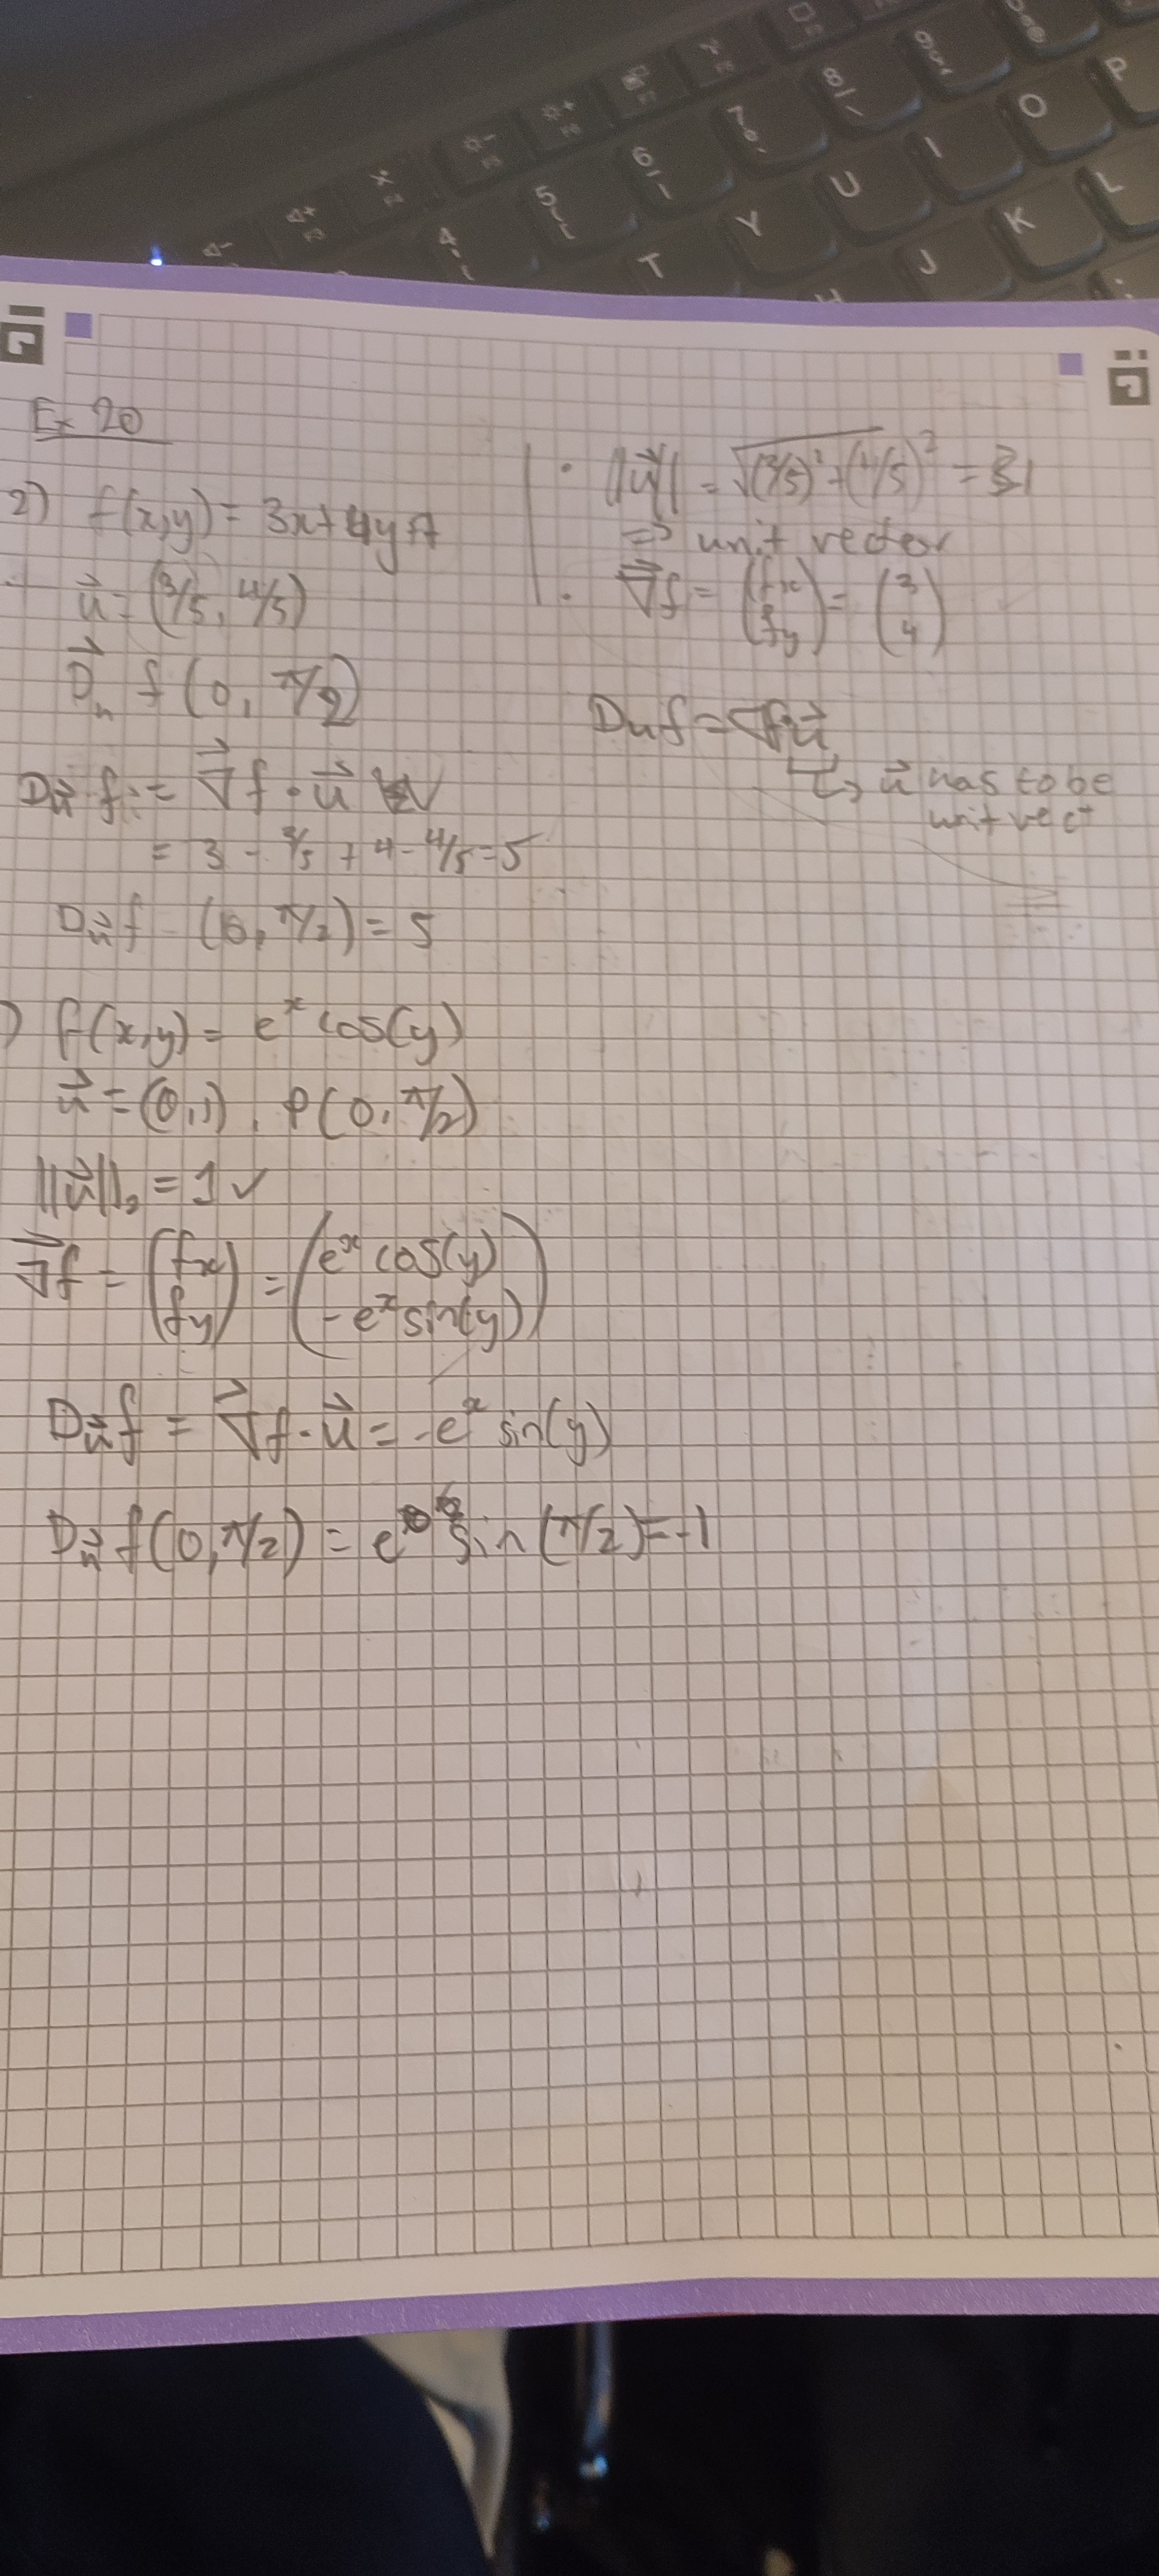 Ex 20
2) f(x,y) = 3x+4y+7
u⃗ = (3/5, 4/5)
D⃗u f (0, π/2)
Du⃗ f := ∇⃗f · u⃗
= 3 - 3/5 + 4 - 4/5 = 5
Du⃗f (0, π/2) = 5
· ||u⃗|| = √(3/5)² + (4/5)² = 1
=> unit vector
· ∇⃗f = (fx fy) = (3 4)
Duf = ∇f·u⃗
↳ u⃗ has to be
unit vect
) f(x,y) = eˣ cos(y)
u⃗ = (0,1), P(0, π/2)
||u⃗||₂ = 1 ✓
∇⃗f = (fx fy) = (eˣ cos(y) -eˣ sin(y))
Du⃗f = ∇⃗f · u⃗ = -eˣ sin(y)
Du⃗ f(0, π/2) = e⁰ sin(π/2) = -1
4
5
6
7
8
9
T
Y
U
I
O
P
J
K
L